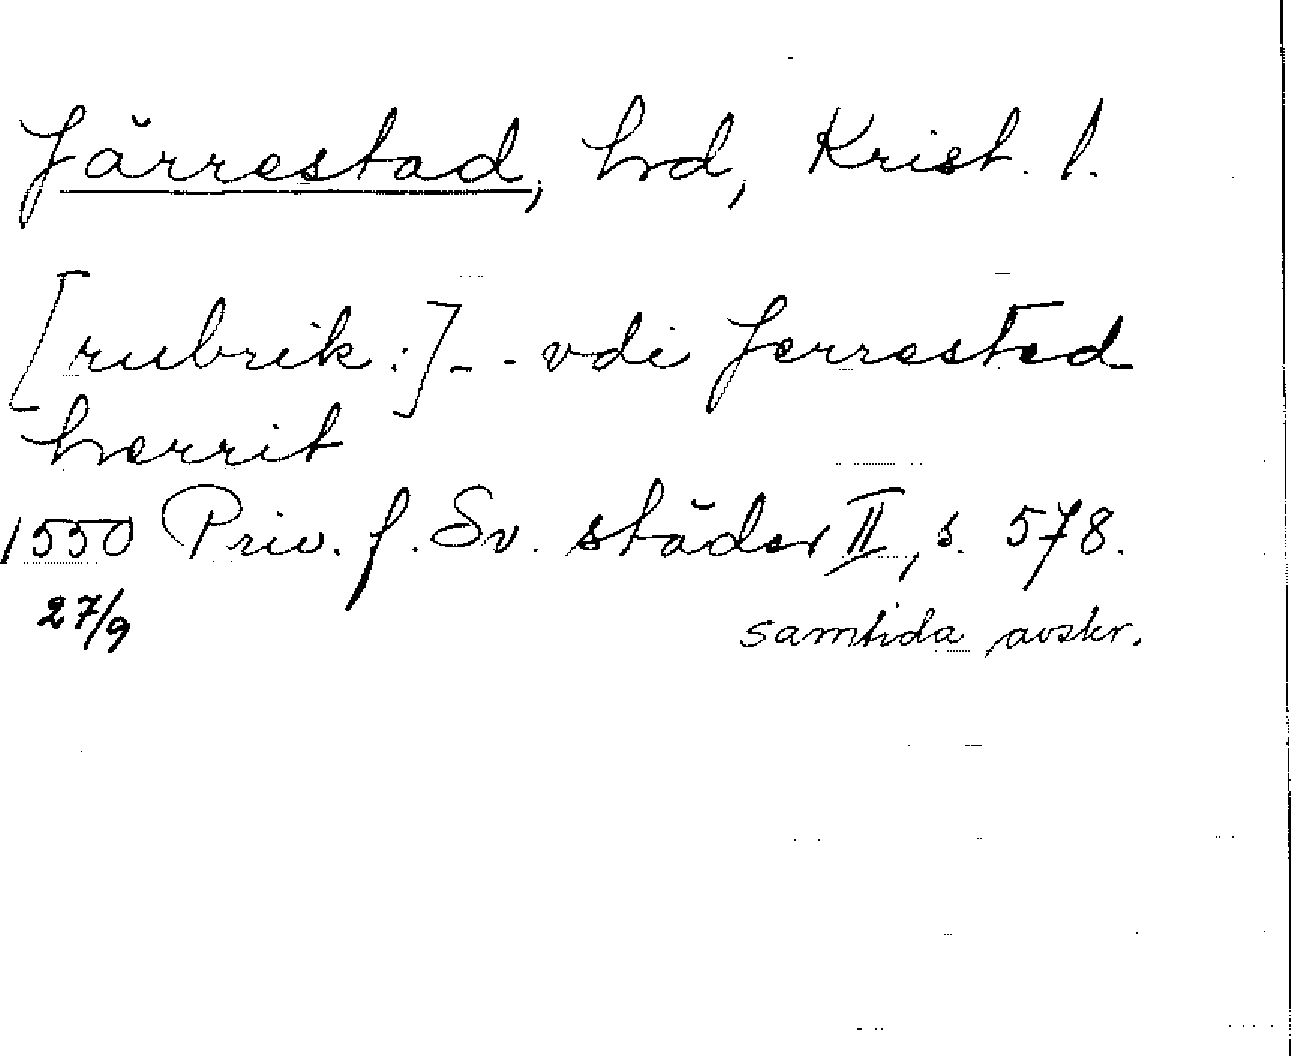 Järrestad, hd, Krist. l.
[rubrik:] - - vdi Jerrested
herrit
1550 Priv. f. Sv. städer II, s. 578.
27/9 samtida avskr.